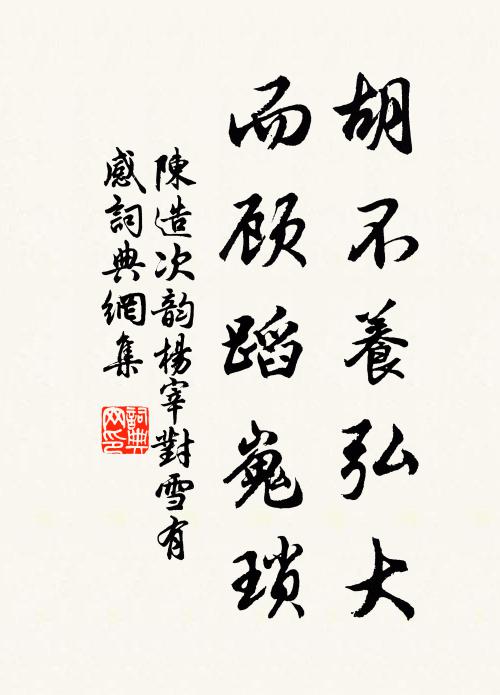 胡不養弘大
而顾蹈嵬瑣
陳造次韵楊宰對雪有
感詞典網集
詞典
网印